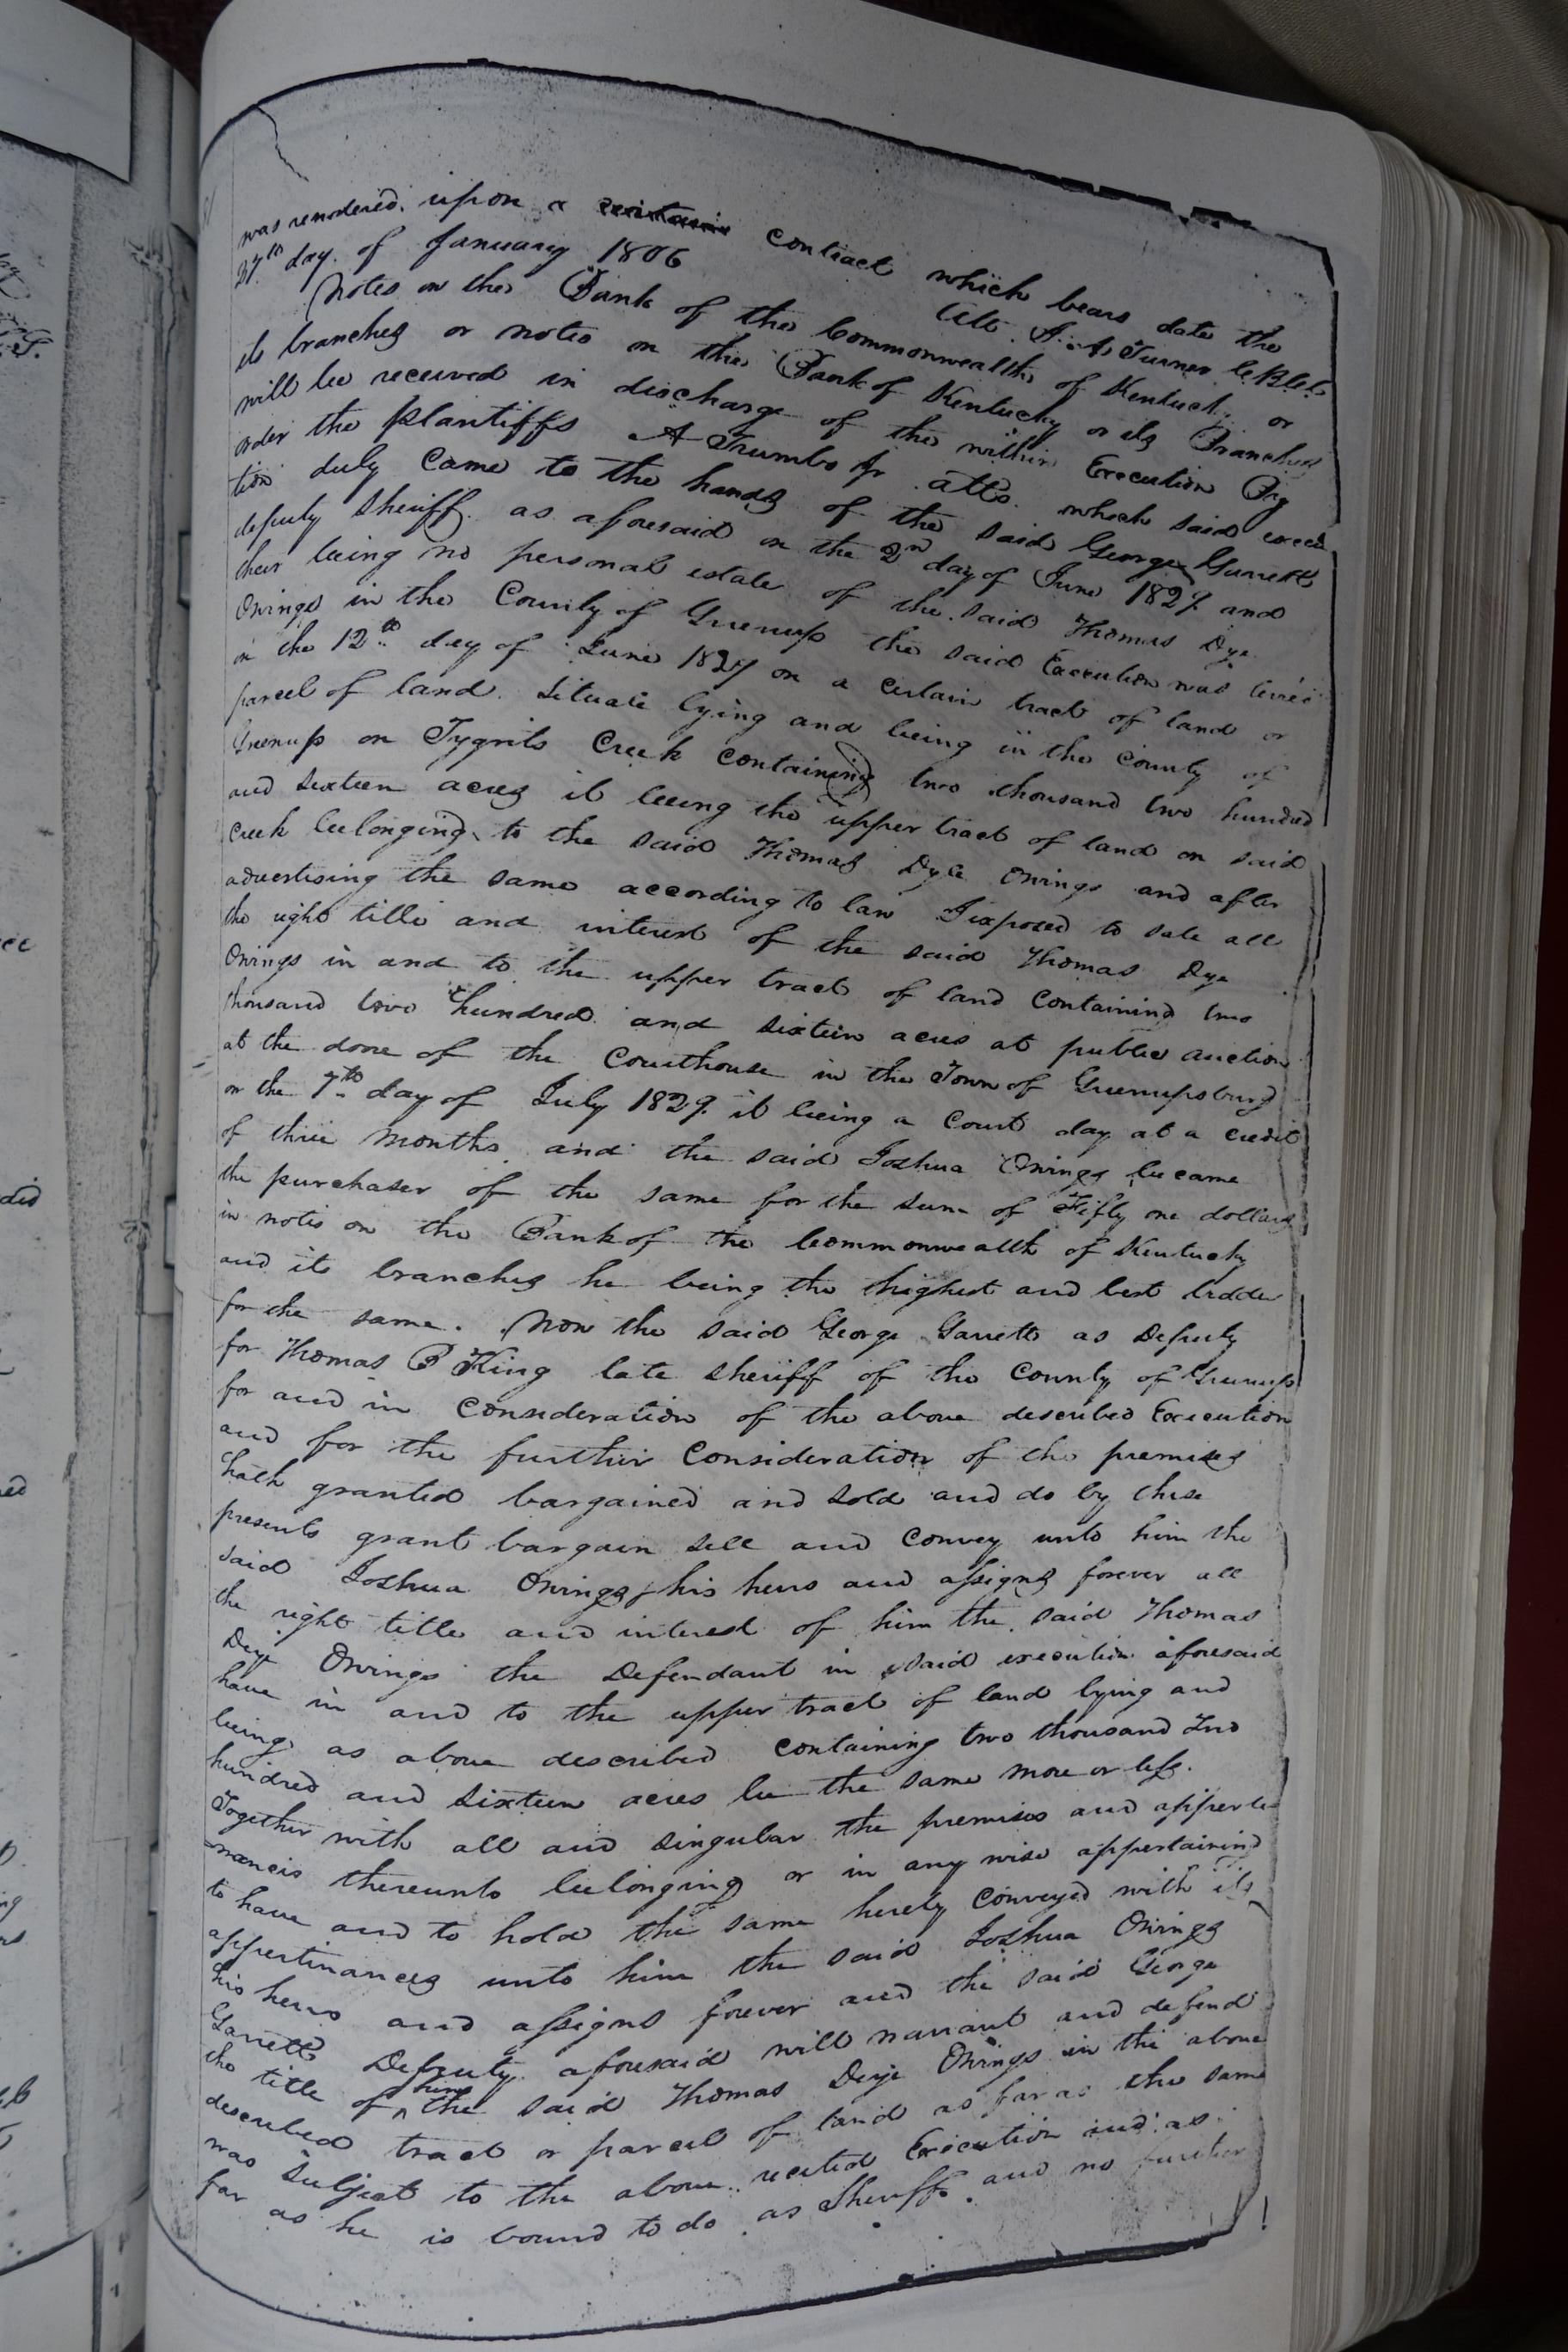 was rendered upon a contract which bears date the
27th day of January 1806 Att. J. A. Turner
Notes on the Bank of the Commonwealth of Kentucky or
its branches or notes on the Bank of Kentucky or its Branches
will be received in discharge of the within Execution By
order the plantiffs A Trumbo Jr atto. which said execu
tion duly came to the hands of the said George Garrett
deputy sheriff as aforesaid on the 2nd day of June 1829 and
their being no personal estate of the said Thomas Dye
Owings in the County of Greenup the said Execution was levied
on the 12th day of June 1829 on a certain tract of land or
parcel of land situate lying and being in the County of
Greenup on Tygrits Creek containing two thousand two hundred
and sixteen acres it being the upper tract of land on said
Creek belonging to the said Thomas Dye Owings and after
advertising the same according to law Iexposed to sale all
the right title and interest of the said Thomas Dye
Owings in and to the upper tract of land containing two
thousand two hundred and sixteen acres at public auction
at the dore of the Courthouse in the Town of Greenupsburg
on the 7th day of July 1829 it being a Court day at a credit
of three months and the said Joshua Owings became
the purchaser of the same for the sum of Fifty one dollars
in notes on the Bank of the Commonwealth of Kentucky
and its branches he being the highest and best bidder
for the same. Now the said George Garrett as Deputy
for Thomas B King late sheriff of the County of Greenup
for and in consideration of the above described Execution
and for the further consideration of the premises
hath granted bargained and sold and do by these
presents grant bargain sell and convey unto him the
said Joshua Owings his heirs and assigns forever all
the right title and interest of him the said Thomas
Deye Owings the Defendant in said execution aforesaid
have in and to the upper tract of land lying and
being as above described containing two thousand Two
hundred and sixteen acres be the same more or less.
Together with all and singular the premises and apperte
nancis thereunto belonging or in any wise appertaining
to have and to hold the same hereby conveyed with its
appertinances unto him the said Joshua Owings
his heirs and assigns forever and the said George
Garrett Deputy aforesaid will warrant and defend
the title of him the said Thomas Deye Owings in the above
described tract or parcel of land as far as the same
was subject to the above recited Execution and as
far as he is bound to do as Sheriff and no further